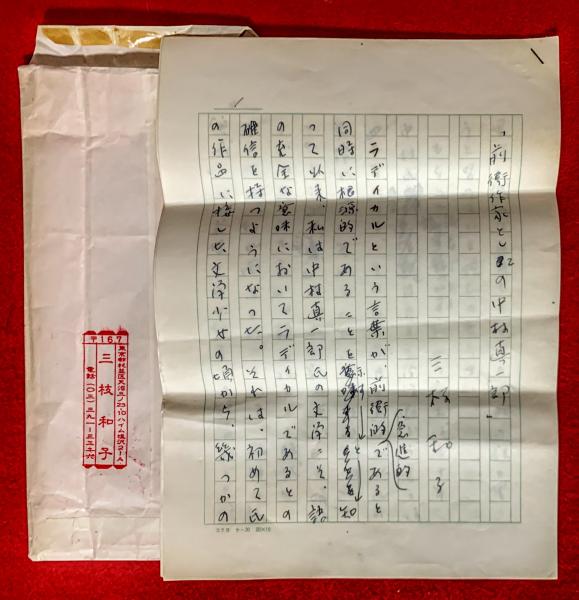 「前衛作家としての中村真一郎」
三枝和子
ラディカルという言葉が、前衛的であると
(急進的)
同時に根源的であることを 知
って以来、私は中村真一郎氏の文学こそ、語
の完全な意味においてラディカルであるとの
確信を持つようになった。それは、初めて氏
の作品に接した、文学少女の頃から、幾つかの
コクヨ ケ-30 20×10
〒167
東京都杉並区天沼 ハイム 沢
三枝和子
電話(〇三)三九一